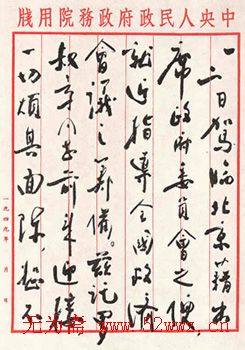 中央人民政府政務院用牋
一二日駕臨北京,藉出
席政府委員會之便,
就近指導全國救濟
會議之籌備。茲託羅
叔章同志前來迎接
一切煩其面陳,恕不
一九四九年 月 日